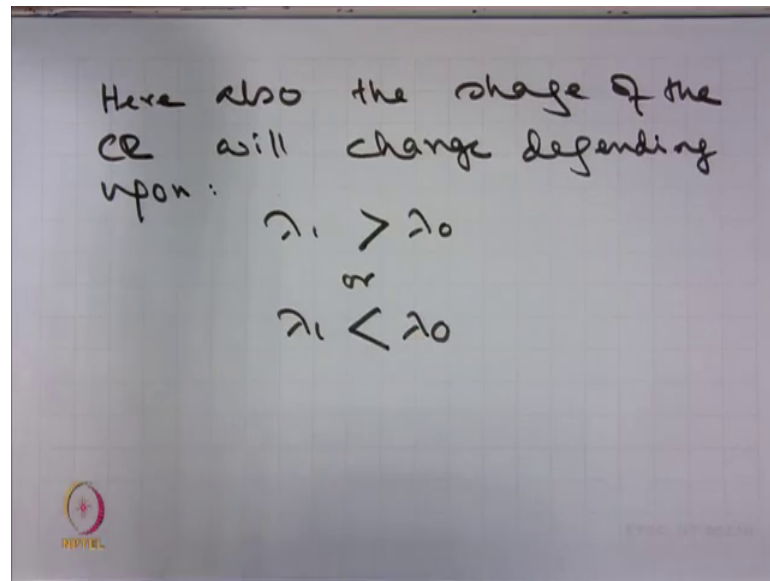 Here also the shape of the
CR will change depending
upon:
λ₁ > λ₀
or
λ₁ < λ₀
NPTEL